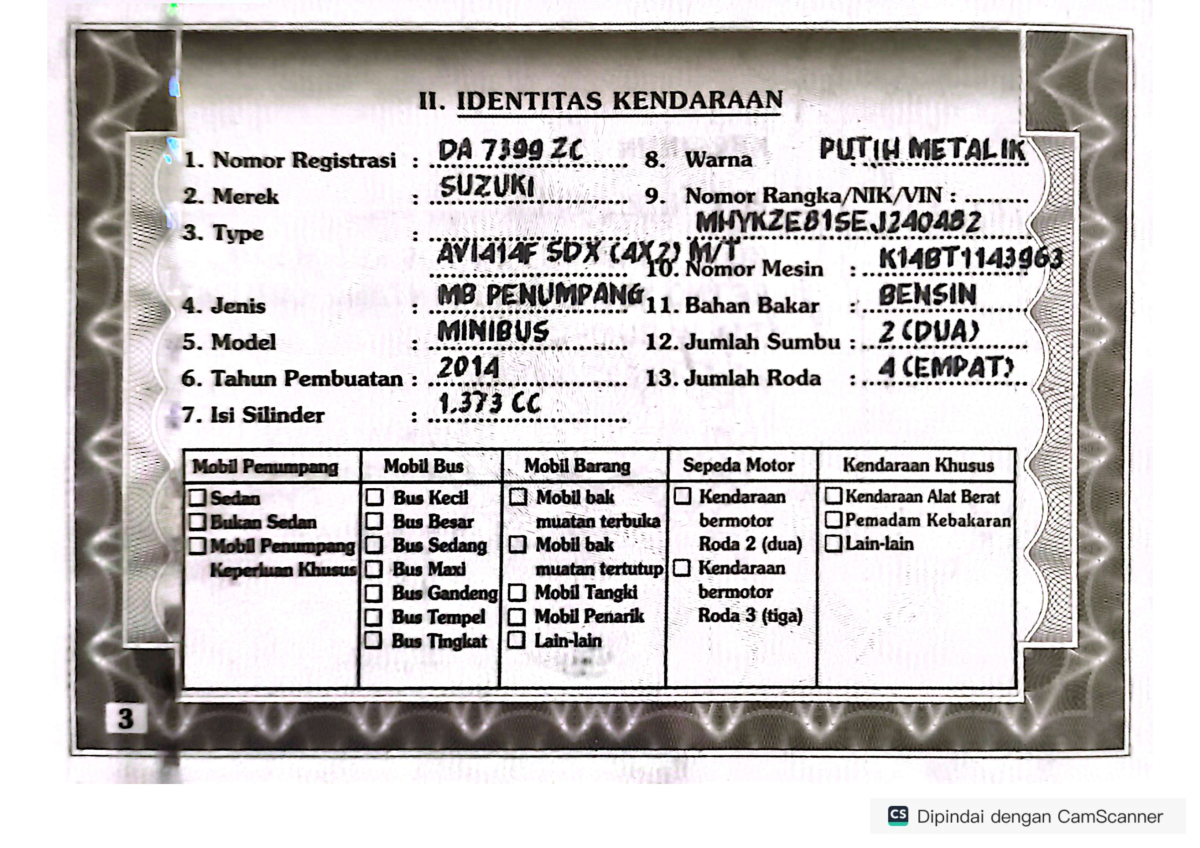 II. IDENTITAS KENDARAAN
1. Nomor Registrasi : DA 7399 ZC
2. Merek : SUZUKI
3. Type : AV1414F SDX (4X2) M/T
4. Jenis : MB PENUMPANG
5. Model : MINIBUS
6. Tahun Pembuatan : 2014
7. Isi Silinder : 1.373 CC
8. Warna PUTIH METALIK
9. Nomor Rangka/NIK/VIN :
MHYKZE81SEJ240482
10. Nomor Mesin : K14BT1143963
11. Bahan Bakar : BENSIN
12. Jumlah Sumbu : 2 (DUA)
13. Jumlah Roda : 4 (EMPAT)
Mobil Penumpang
Sedan
Bukan Sedan
Mobil Penumpang
Keperluan Khusus
Mobil Bus
Bus Kecil
Bus Besar
Bus Sedang
Bus Maxi
Bus Gandeng
Bus Tempel
Bus Tingkat
Mobil Barang
Mobil bak
muatan terbuka
Mobil bak
muatan tertutup
Mobil Tangki
Mobil Penarik
Lain-lain
Sepeda Motor
Kendaraan
bermotor
Roda 2 (dua)
Kendaraan
bermotor
Roda 3 (tiga)
Kendaraan Khusus
Kendaraan Alat Berat
Pemadam Kebakaran
Lain-lain
3
CS Dipindai dengan CamScanner